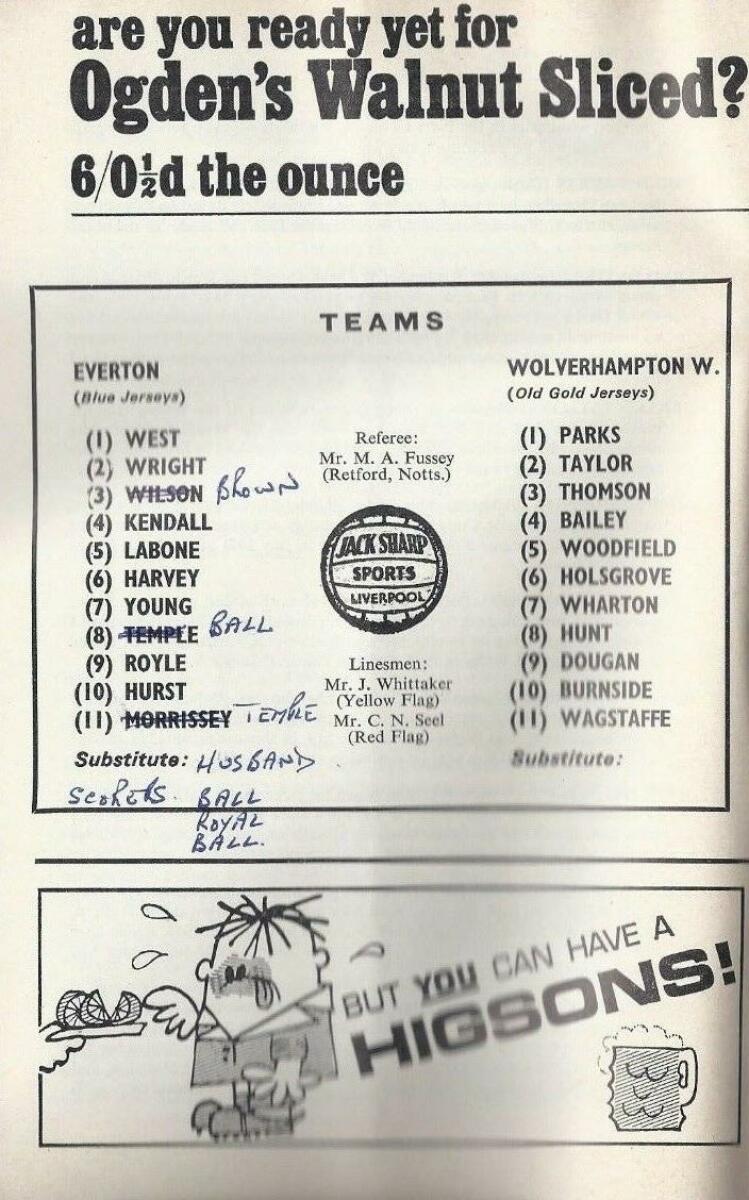 are you ready yet for
Ogden's Walnut Sliced?
6/0½d the ounce
TEAMS
EVERTON
(Blue Jerseys)
(1) WEST
(2) WRIGHT
(3) WILSON BROWN
(4) KENDALL
(5) LABONE
(6) HARVEY
(7) YOUNG
(8) TEMPLE BALL
(9) ROYLE
(10) HURST
(11) MORRISSEY TEMPLE
Substitute: HUSBAND
SCORERS. BALL
ROYAL
BALL.
Referee:
Mr. M. A. Fussey
(Retford, Notts.)
JACK SHARP
SPORTS
LIVERPOOL
Linesmen:
Mr. J. Whittaker
(Yellow Flag)
Mr. C. N. Seel
(Red Flag)
WOLVERHAMPTON W.
(Old Gold Jerseys)
(1) PARKS
(2) TAYLOR
(3) THOMSON
(4) BAILEY
(5) WOODFIELD
(6) HOLSGROVE
(7) WHARTON
(8) HUNT
(9) DOUGAN
(10) BURNSIDE
(11) WAGSTAFFE
Substitute:
BUT YOU CAN HAVE A
HIGSONS!